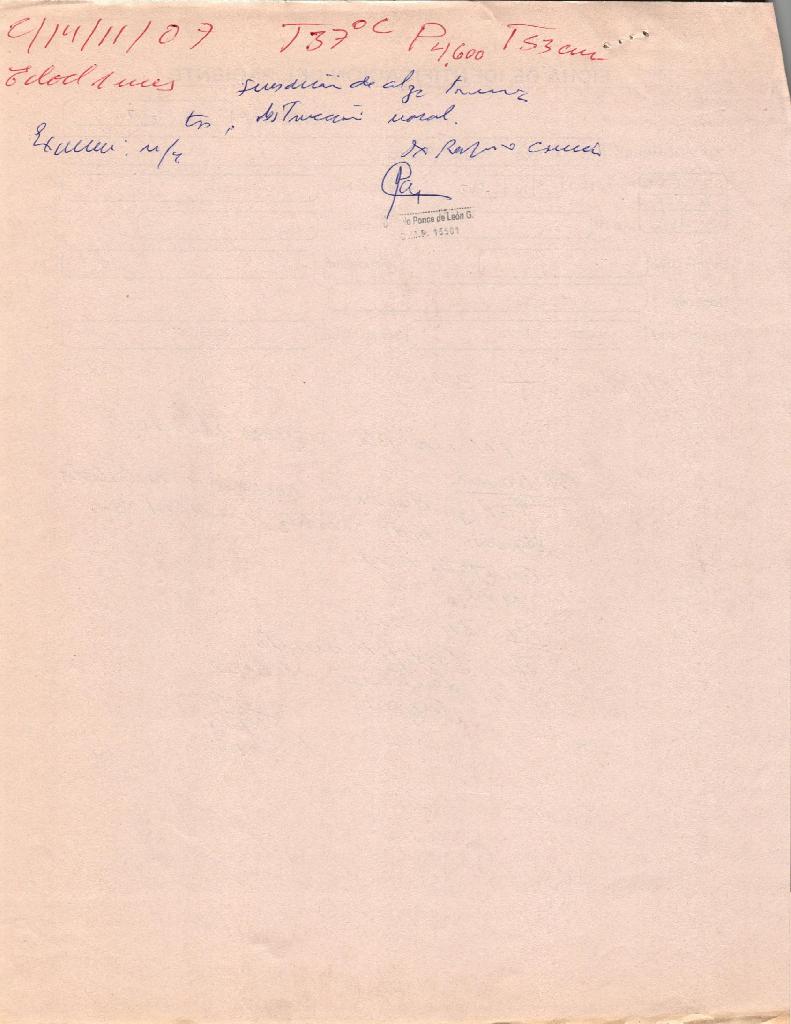 C/14/11/07 T37°C P4,600 T53cm
Edad 1 mes sensación de alza
tos, obstrucción nasal.
Examen: n/
Dx Resfrío común
Ponce de León G.
.M.P. 15501